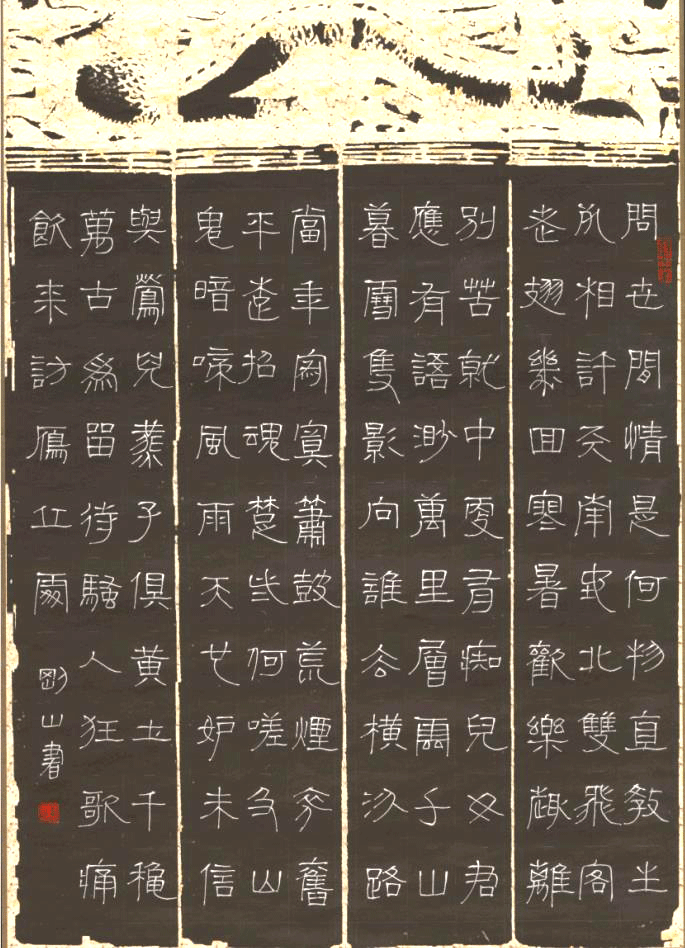 問世間情是何物直教生
死相許天南地北雙飛客
老翅幾回寒暑歡樂趣離
別苦就中更有痴兒女君
應有語渺萬里層雲千山
暮雪隻影向誰去橫汾路
當年寂寞簫鼓荒煙依舊
平楚招魂楚些何嗟及山
鬼暗啼風雨天也妒未信
與鶯兒燕子俱黃土千穐
萬古為留待騷人狂歌痛
飲來訪鴈丘處
剛山書